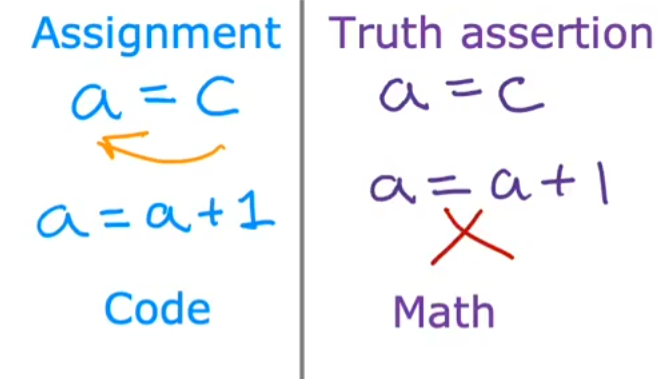 Assignment
a = c
a = a + 1
Code
Truth assertion
a = c
a = a + 1
Math